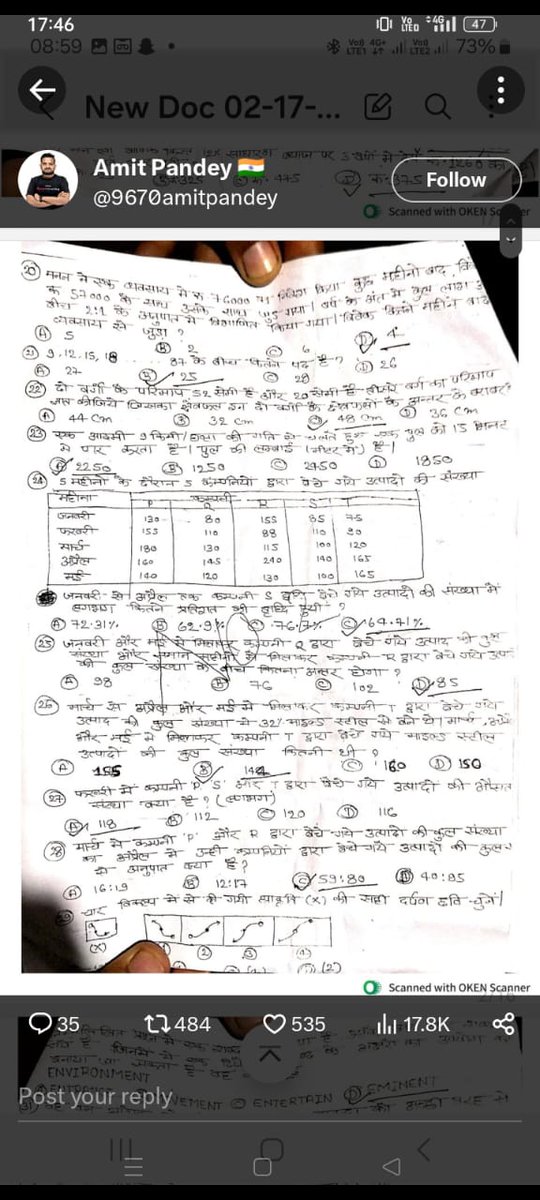 17:46
47
08:59
73%
New Doc 02-17-...
Amit Pandey🇮🇳
@9670amitpandey
Follow
Scanned with OKEN Scanner
20 मनन ने एक व्यवसाय में रु 76000 का निवेश किया। कुछ महीनों बाद,
रु 57000 के साथ उसके साथ जुड़ गया। वर्ष के अंत में कुल लाभ
बीच 2:1 के अनुपात में विभाजित किया गया। विवेक कितने महीने बाद
व्यवसाय से जुड़ा ?
A 5 B 2 C 6 D 4
21 9, 12, 15, 18 ...... 87 के बीच कितने पद है ?
A 27 B 25 C 28 D 26
22 दो वर्गों के परिमाप 52 सेमी है और 20 सेमी है। तीसरे वर्ग का परिमाप
ज्ञात कीजिये जिसका क्षेत्रफल इन दो वर्गों के क्षेत्रफलों के अन्तर के बराबर
A 44 cm B 32 cm C 48 cm D 36 cm
23 एक आदमी 9 किमी/घण्टा की गति से चलते हुए एक पुल को 15 मिनट
में पार करता है। पुल की लम्बाई (मीटर में) है।
A 2250 B 1250 C 2450 D 1850
24 5 महीनों के दौरान 5 कम्पनियों द्वारा बेचे गये उत्पादों की संख्या
महीना कम्पनी
P Q R S T
जनवरी 130 80 155 85 75
फरवरी 155 110 88 110 90
मार्च 180 130 115 100 120
अप्रैल 160 145 240 140 165
मई 140 120 130 100 165
जनवरी से अप्रैल तक कम्पनी S द्वारा बेचे गये उत्पादों की संख्या में
लगभग कितने प्रतिशत की वृद्धि हुयी ?
A 72.31% B 62.9% 76.17% C 64.71%
25 जनवरी और मई से मिलाकर कम्पनी Q द्वारा बेचे गये उत्पाद की कुल
संख्या और समान महीनों से मिलाकर कम्पनी R द्वारा बेचे गये
की कुल संख्या के बीच कितना अन्तर होगा ?
A 98 B 76 C 102 D 85
26 मार्च से अप्रैल और मई से मिलाकर कम्पनी T द्वारा बेचे गये
उत्पाद की कुल संख्या में 32% माइल्ड स्टील से बने थे। मार्च,
और मई में मिलाकर कम्पनी T द्वारा बेचे गये माइल्ड स्टील
उत्पादों की कुल संख्या कितनी थी ?
A 155 B 144 C 160 D 150
27 फरवरी में कम्पनी P, S और T द्वारा बेचे गये उत्पादों की औसत
संख्या क्या है ? (लगभग)
A 118 B 112 C 120 D 116
28 मार्च में कम्पनी 'P' और R द्वारा बेचे गये उत्पादों की कुल संख्या
का अप्रैल में उन्ही कम्पनियों द्वारा बेचे गये उत्पादों की कुल
से अनुपात क्या है ?
A 16:19 B 12:17 C 59:80 D 40:85
चार विकल्प में से दी गयी आकृति (X) की सही दर्पण छवि चुनें।
(X) 1 2 3 (4)
(2)
Scanned with OKEN Scanner
35 484 535 17.8K
ENVIRONMENT
ENTERTAIN D EMINENT
Post your reply